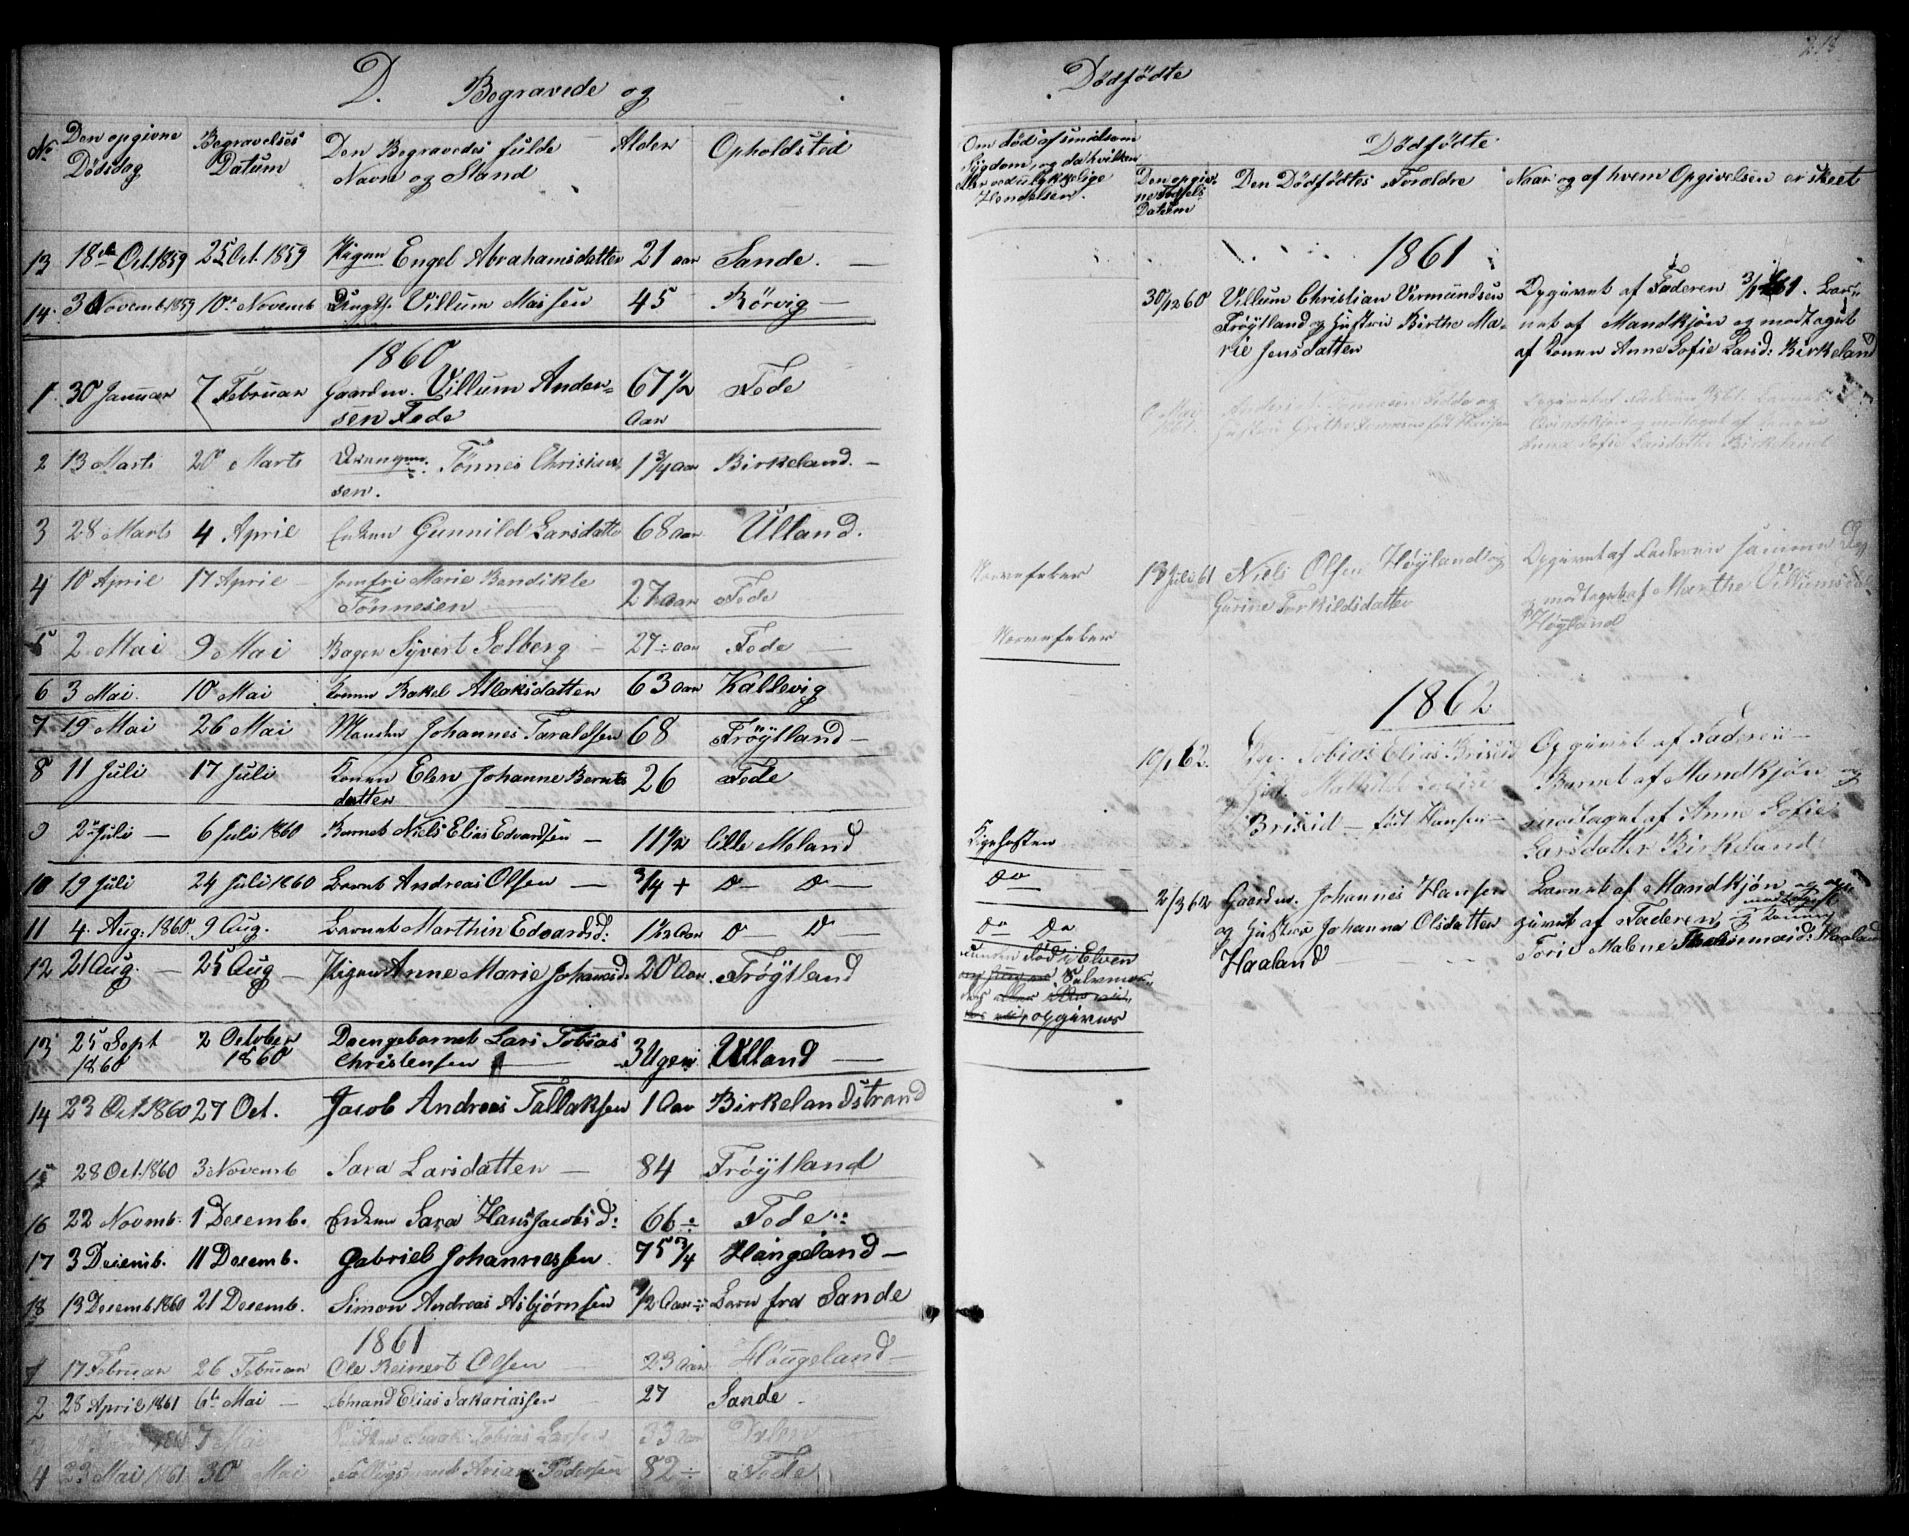 D. Begravede og
No Den opgivne Dødsdag Begravelses Datum Den Begravedes fulde Navn og Stand Alder Opholdsted
13 18de Oct. 1859 25 Oct. 1859 Pigen Engel Abrahamsdatter 21 aar Sande.
14. 3 Novemb. 1859 10de Novemb Villum Massen 45 Rörvig
1860
1 30 Januar 7 Februar Gaardm. Villum Ander-
sen Fede 67 1/2 Aar Fede
2 13 Marts 20 Marts Tönnes Chris
sen. 1 3/4 Aar Birkeland.
3 28 Marts 4 April Enken Gunnild Larsdatter 68 Aar Ulland.
4 10 April 17 April Jomfru Marie Bendikte
Tönnesen 27 Aar Fede
5 2 Mai 9 Mai Bager Syvert Solberg 27 Aar Fede
6 3 Mai. 10 Mai Konen Rakel Aslaksdatter 63 Aar Kallevig
7 19 Mai 26 Mai Manden Johannes Taraldsen 68 Fröytland
8 11 Juli 17 Juli Konen Elen Johanne Bernts
datter 26 Fede
9 2 Juli 6 Juli 1860 Barnet Niels Elias Edvardsen 11 1/2 lille Meland
10 19 Juli 24 Juli 1860 Barnet Andreas Olsen 3/4 + D D
11 4. Aug: 1860 9 Aug. Barnet Marthin Edvardsd: 1 1/2 Aar D D
12 21 Aug. 25 Aug Pigen Anne Marie Johannesd. 20 Aar. Fröytland
13 25 Sept 1860 2 October 1860 Drengebarnet Lars Tobias
Christensen 3 Uger Ulland
14 23 Oct. 1860 27 Oct. Jacob Andreas Tallaksen 1 Aar Birkelandstrand
15 28 Oct. 1860 3 Novemb Sara Larsdatter 84 Fröytland
16 22 Novmb. 1 Decemb. Enken Sara Hans Jacobsd: 66 Fede
17 3 Decemb. 11 Decemb. Gabriel Johannessen 75 3/4 Haugeland
18 13 Decemb. 1860 21 Decemb. Simon Andreas Asbjørnsen 1/2 Aar Barn fra Sande
1861
1 17 Februar 26 Februar Ole Reinert Olsen 23 Aar Haugeland
2 28 April 1861 6te Mai Elias Sakariassen 27 Sande
7 Mai Tobias Larsen 33 Aar
4 23 Mai 1861 30 Mai Pedersen 82 Fede
Dödfödte
218
Om død af smitsom
Sygdom, og da hvilken
eller ved ulykkelige
Hendelser.
Dödfödte
Den opgivne Födsels Datum Den Dödfödtes Forældre Naar og af hvem Opgivelsen er skeet
1861
30/12 60 Villum Christian Vermundsen Opgivet af Faderen 3/1 61. Bar-
Fröytland og Hustru Birthe Ma- net af Mandkjøn og modtaget
rie Jensdatter af Konen Anne Sofie Larsd: Birkeland
Mai
Anna Sofie Larsdatter Birkeland
Nervefeber 13 Juli 61 Niels Olsen Höyland og Opgivet af Faderen samme Dag
Gurine Torkildsdatter og modtaget af Marthe Villumsd
Höyland
Nervefeber
1862
10/1 62. Tobias Elias Briseid Opgivet af Faderen
Mathilde Barnet af Mandkjøn og
Briseid født Hansen modtaget af Anne Sofie
Larsdatter Birkeland
Kighosten
Do
2/3 62 Gaardm. Johannes Hansen Barnet af Mandkjøn og op-
og Hustru Johanna Olsdatter givet af Faderen og modtaget af Konen
Haaland Torie Malene Haaland
Do Do
funden Død i Elven
opgives